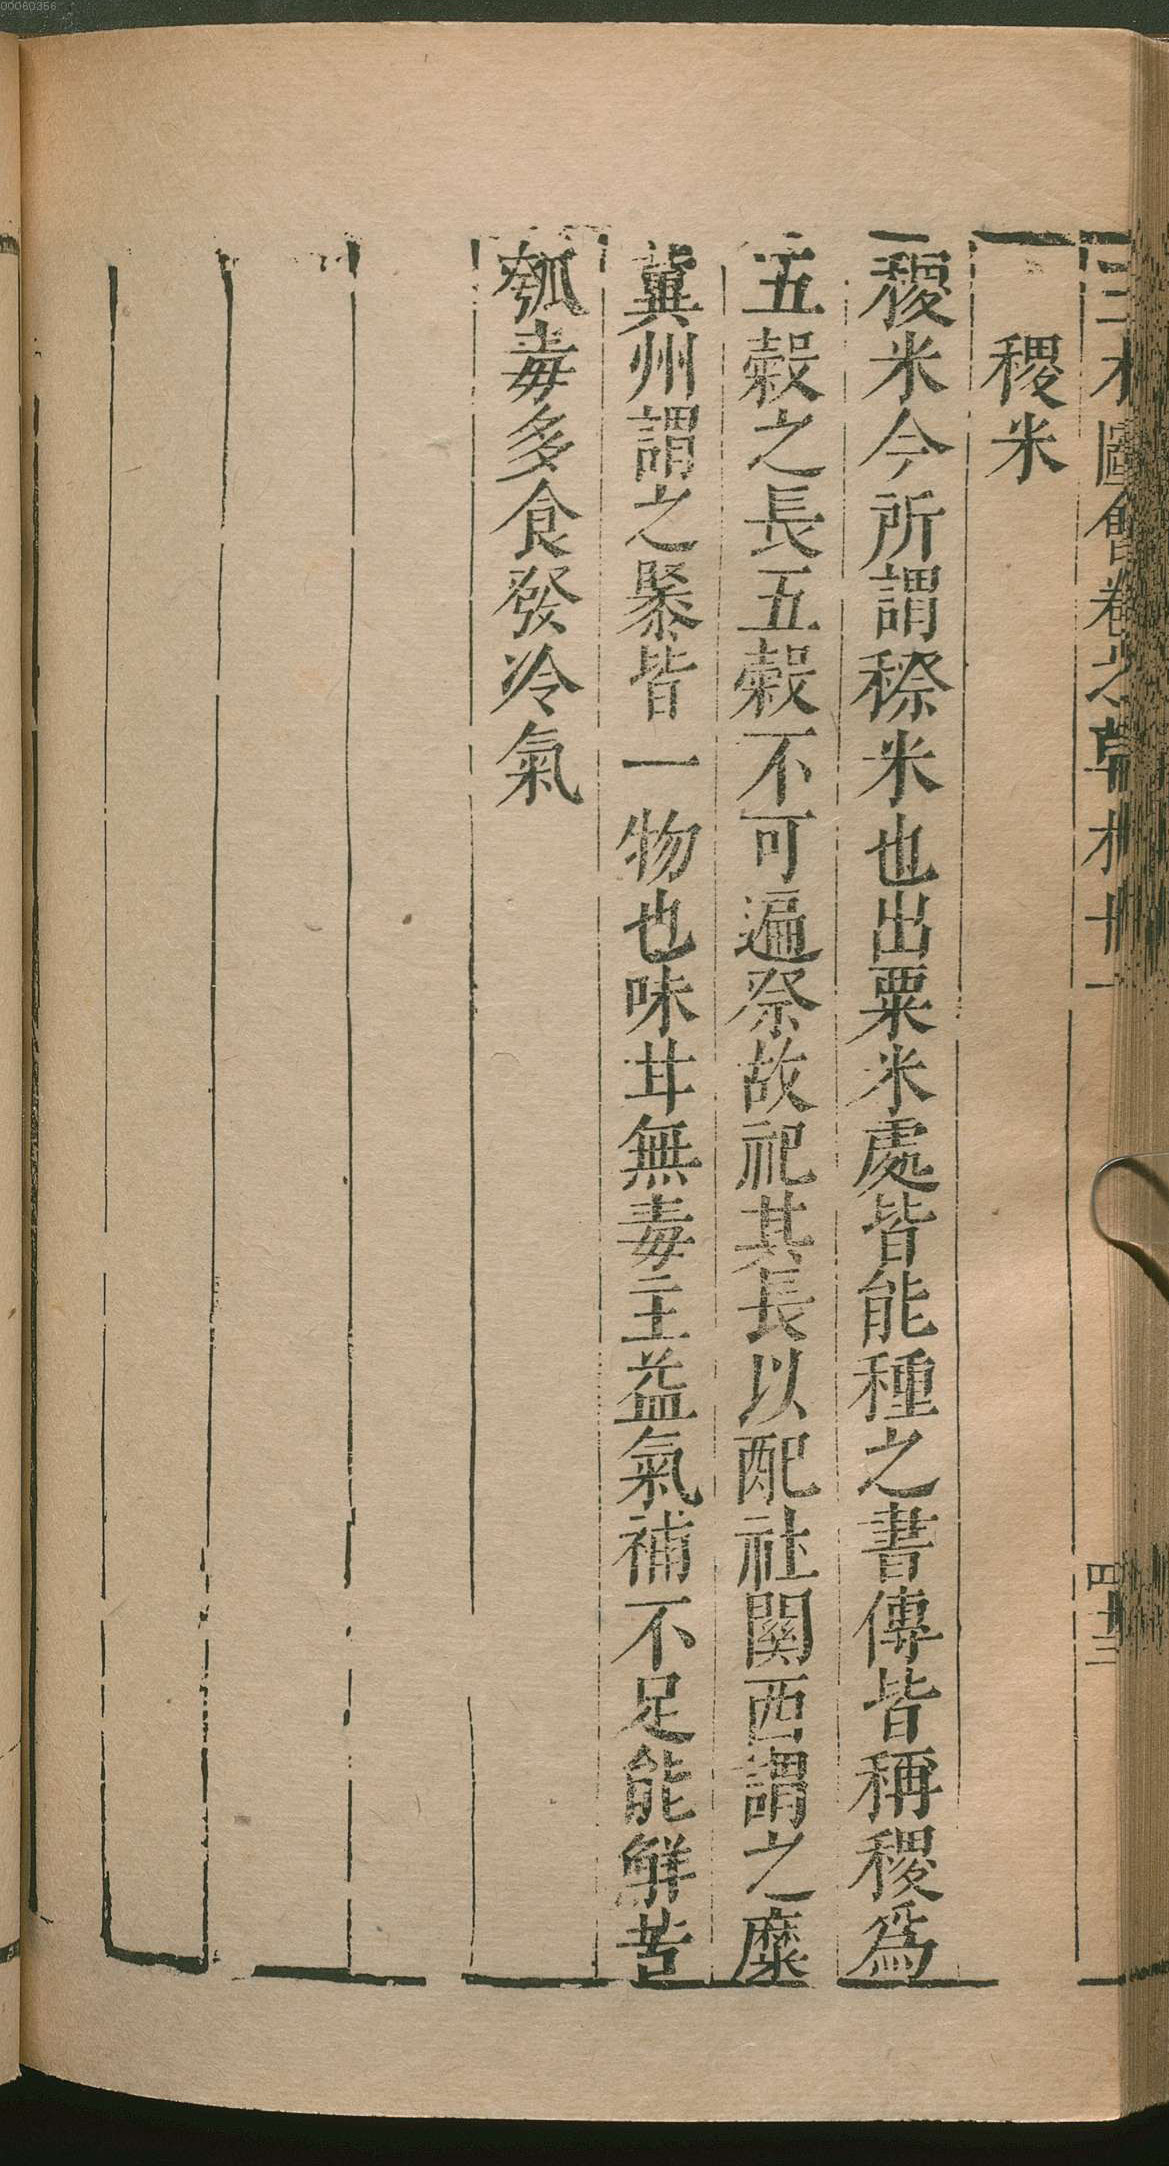 三才圖會卷之草木十一
四十三
稷米
稷米今所謂穄米也出粟米處皆能種之書傳皆稱稷為
五穀之長五穀不可遍祭故祀其長以配社關西謂之糜
冀州謂之䵖皆一物也味甘無毒主益氣補不足能解苦
瓠毒多食發冷氣
00060356